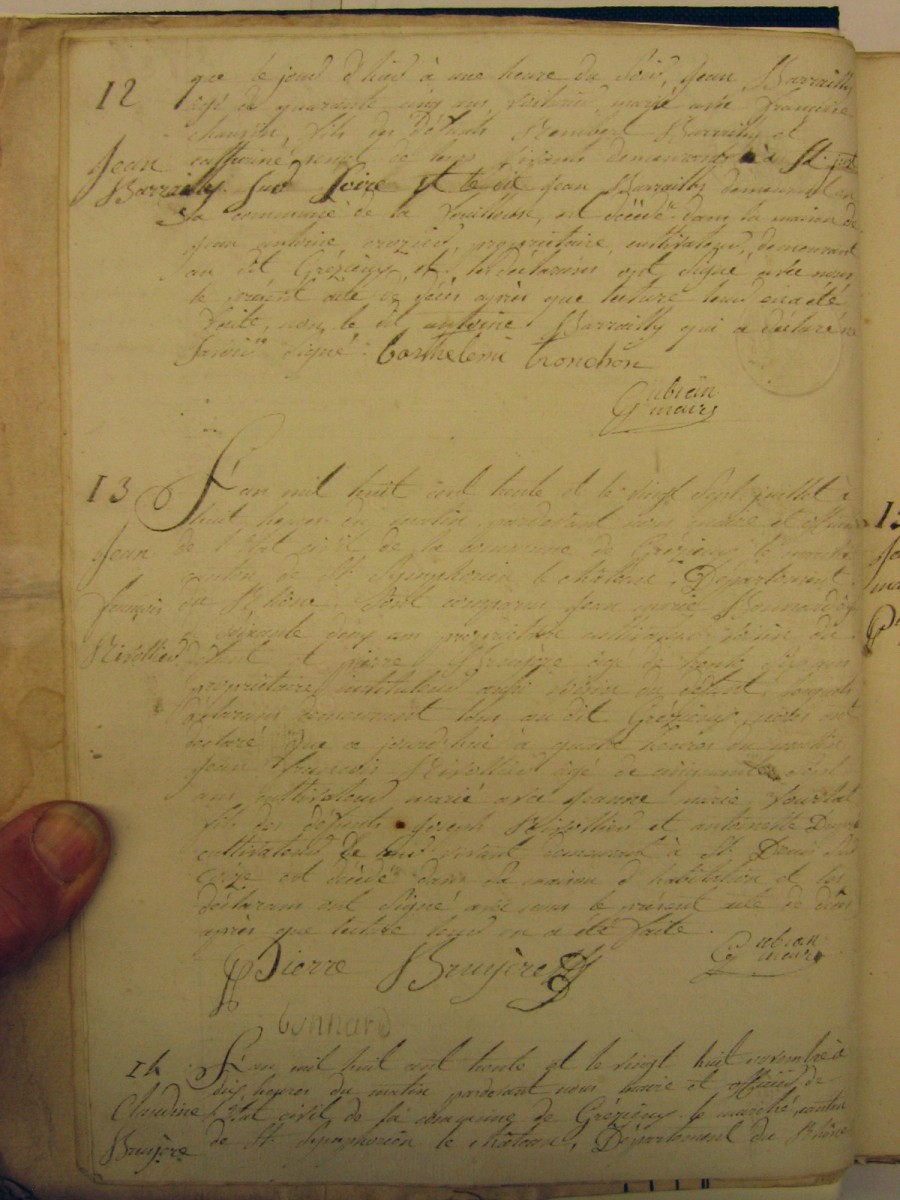 12
que le jour d'hier à une heure du soir, Jean Barrailly
agé de quarante cinq ans, voiturier, marié avec Françoise
fils des défunts Barrailly et
Jean
Barrailly
catherine de leurs vivants demeurants à St. just
sur Loire et le dit Jean Barrailly demeurant en
la commune de la est décédé dans la maison de
Jean antoine propriétaire, cultivateur, demeurant
au dit Grézieux et les déclarants ont signé avec nous
le présent acte de décès après que lecture leur en a été
faite, non le dit antoine Barrailly qui a déclaré ne
savoir signé. barthelemi tronchon
Gubian
maire
13
L'an mil huit cent trente et le vingt sept juillet à
huit heures du matin pardevant nous maire et officier
Jean
françois
Rivollier
de l'état civil de la commune de Grézieux le marché
canton de St. Symphorien le château, Département
du Rhône. Sont comparus Jean marie
soixante deux ans propriétaire cultivateur voisin du
défunt et pierre Bruyère agé de trente ans
propriétaire instituteur aussi voisin du défunt, lesquels
déclarans demeurant tous au dit Grézieux, nous ont
déclaré que ce jourd'hui à quatre heures du matin
Jean François Rivollier agé de cinquante
ans cultivateur marié avec Jeanne marie
fils des défunts Joseph Rivollier et antoinette
cultivateurs de leur vivant demeurant à St. Denis sur
coize est décédé dans sa maison d'habitation et les
déclarans ont signé avec nous le présent acte de décès
après que lecture leur en a été faite.
Pierre Bruyère
Gubian
maire
bonnard
14
L'an mil huit cent trente et le vingt huit novembre à
dix heures du matin pardevant nous maire et officier de
Claudine
Bruyère
l'état civil de la commune de Grézieux le marché, canton
de St. Symphorien le château, Département du Rhône